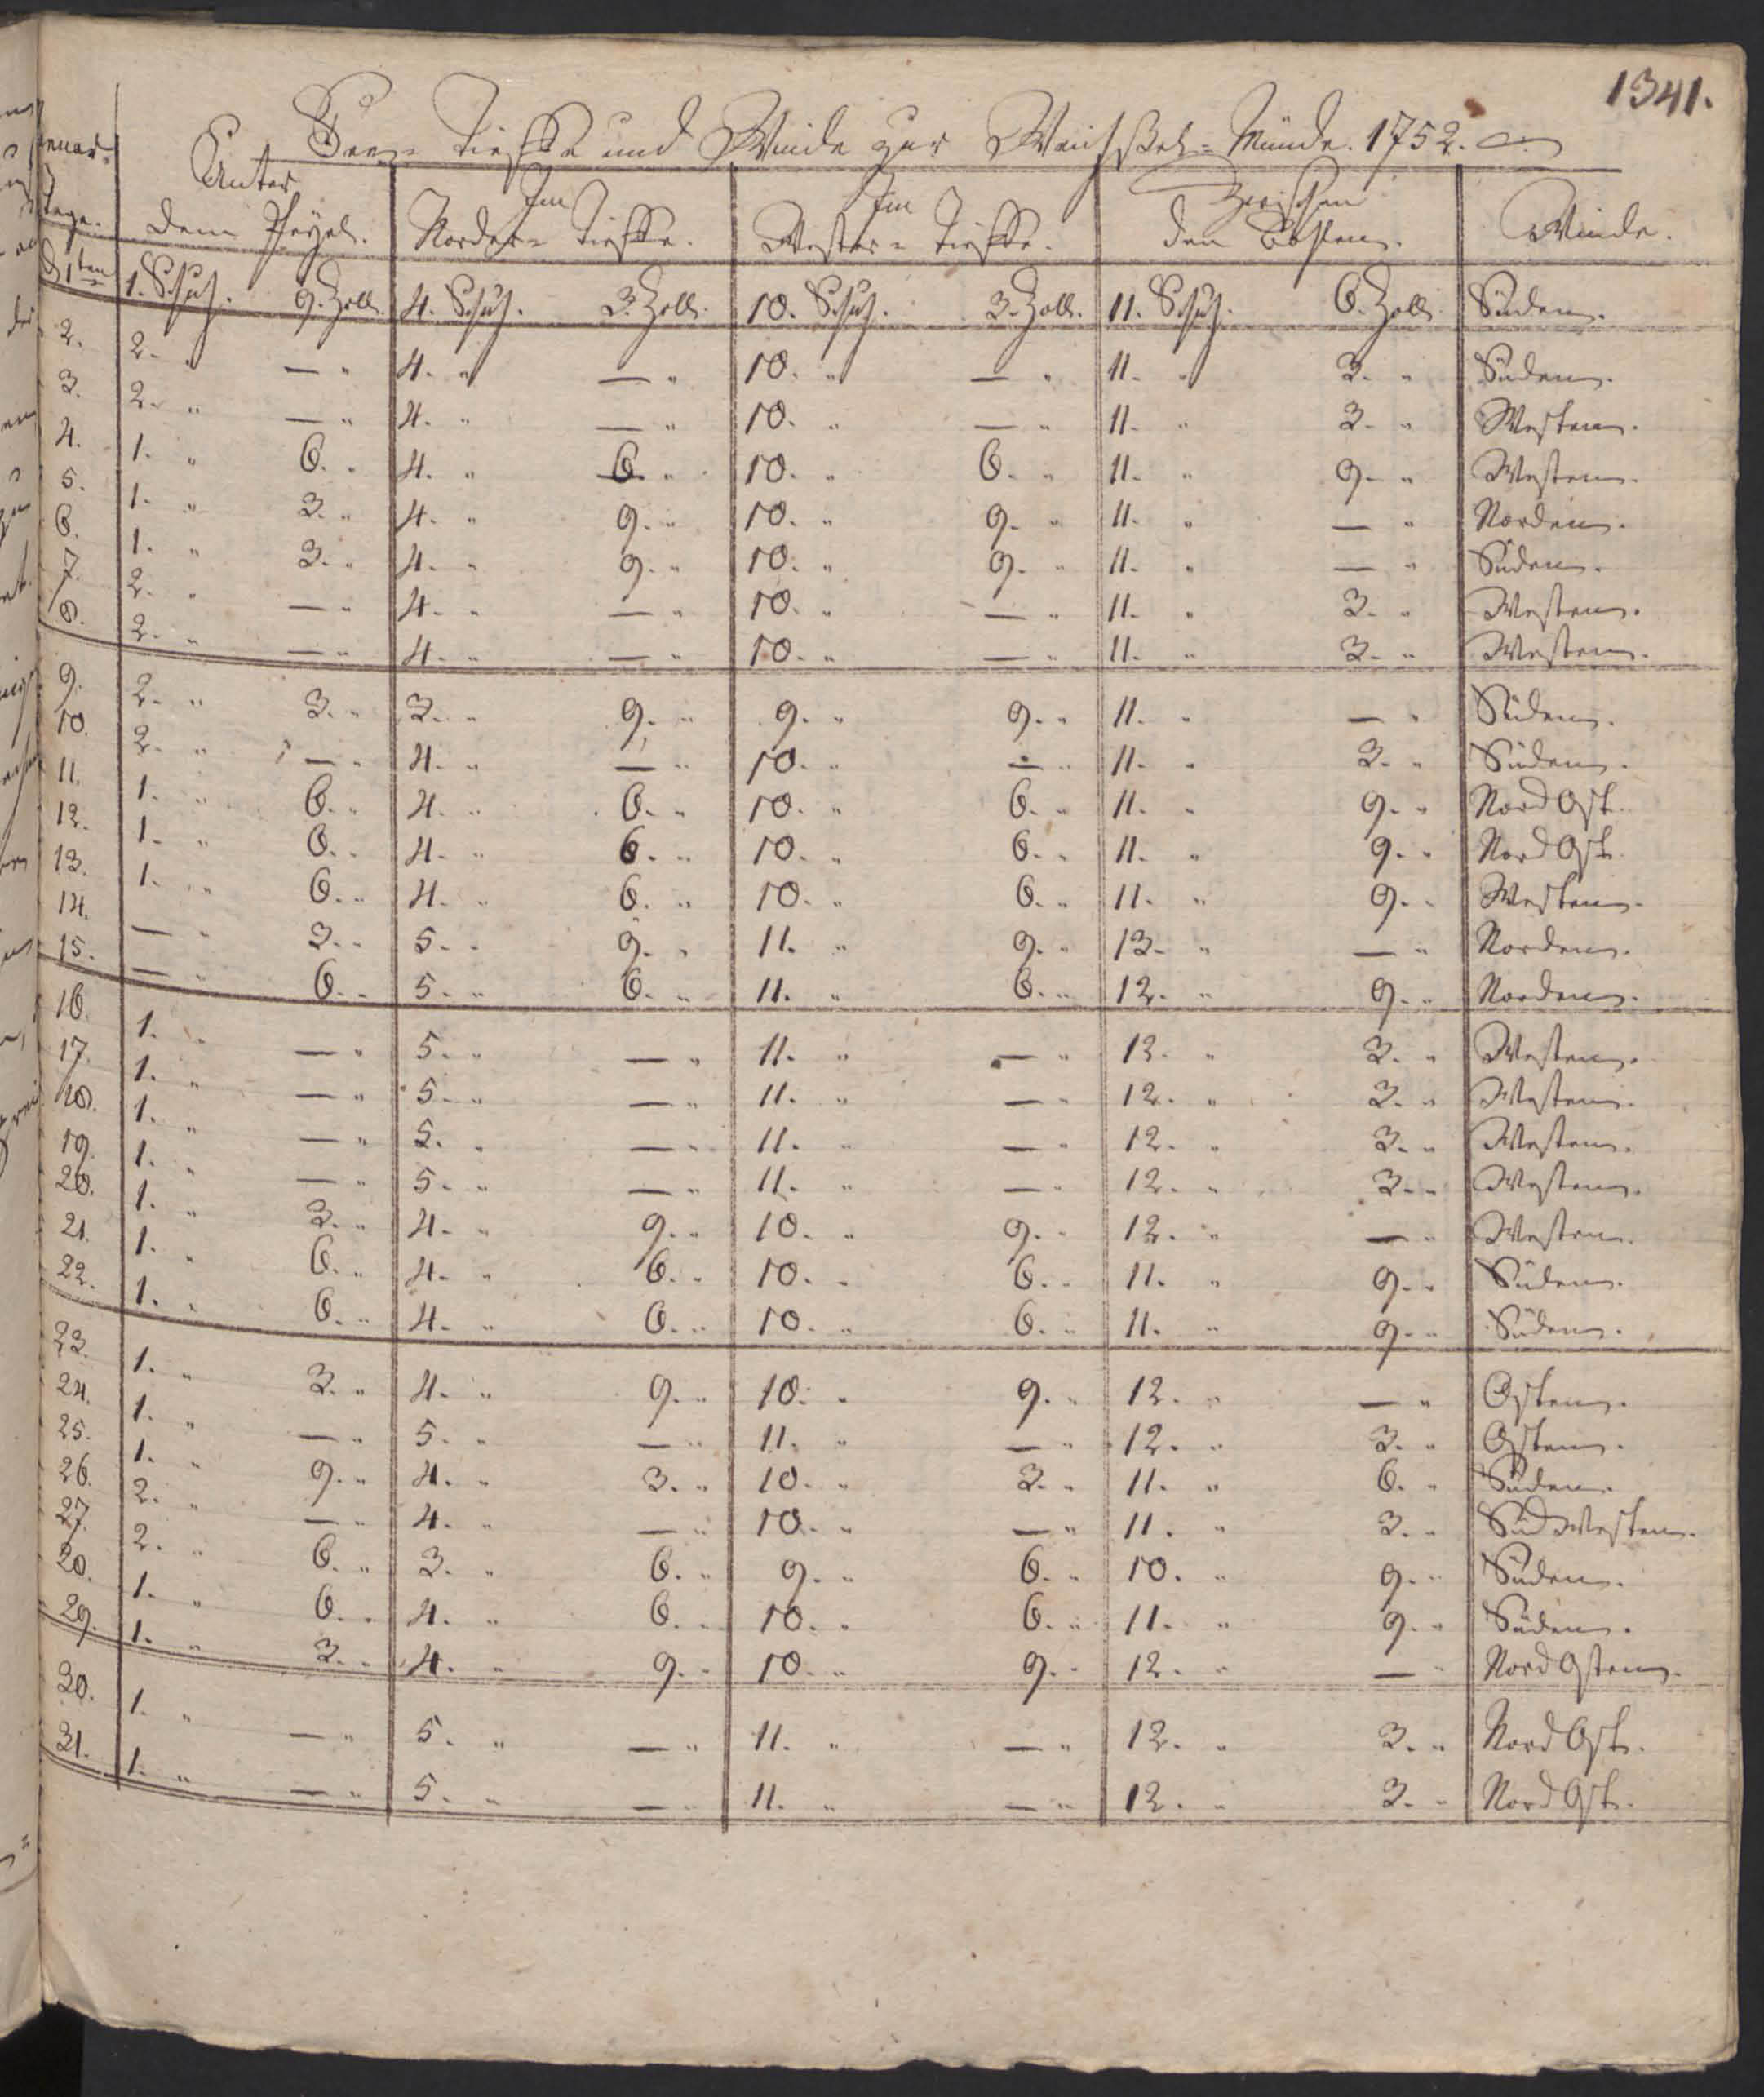 1341.
See= Tieffe und Winde zur Weichsel=Münde. 1752.
Januar= Unter Im Im Zwischen
Tage. dem Peyel. Norder= Tieffe. Wester= Tieffe. den Winde.
d 1ten 1. Schuh. 9. Zoll. 4. Schuh. 3. Zoll. 10. Schuh. 3. Zoll. 11. Schuh. 6. Zoll. Süden.
2. 2. " — " 4. " — " 10. " — " 11. " 3. " Süden.
3. 2. " — " 4. " — " 10. " — " 11. " 3. " Westen.
4. 1. " 6. " 4. " 6. " 10. " 6. " 11. " 9. " Westen.
5. 1. " 3. " 4. " 9. " 10. " 9. " 11. " — " Norden.
6. 1. " 3. " 4. " 9. " 10. " 9. " 11. " — " Süden.
7. 2. " — " 4. " — " 10. " — " 11. " 3. " Westen.
8. 2. " — " 4. " — " 10. " — " 11. " 3. " Westen.
9. 2. " 3. " 3. " 9. " 9. " 9. " 11. " — " Süden.
10. 2. " — " 4. " — " 10. " — " 11. " 3. " Süden.
11. 1. " 6. " 4. " 6. " 10. " 6. " 11. " 9. " Nord Ost.
12. 1. " 6. " 4. " 6. " 10. " 6. " 11. " 9. " Nord Ost.
13. 1. " 6. " 4. " 6. " 10. " 6. " 11. " 9. " Westen.
14. — " 3. " 5. " 9. " 11. " 9. " 13. " — " Norden.
15. — " 6. " 5. " 6. " 11. " 6. " 12. " 9. " Norden.
16. 1. " — " 5. " — " 11. " — " 12. " 3. " Westen.
17. 1. " — " 5. " — " 11. " — " 12. " 3. " Westen.
18. 1. " — " 5. " — " 11. " — " 12. " 3. " Westen.
19. 1. " — " 5. " — " 11. " — " 12. " 3. " Westen.
20. 1. " 3. " 4. " 9. " 10. " 9. " 12. " — " Westen.
21. 1. " 6. " 4. " 6. " 10. " 6. " 11. " 9. " Süden.
22. 1. " 6. " 4. " 6. " 10. " 6. " 11. " 9. " Süden.
23. 1. " 3. " 4. " 9. " 10. " 9. " 12. " — " Osten.
24. 1. " — " 5. " — " 11. " — " 12. " 3. " Osten.
25. 1. " 9. " 4. " 3. " 10. " 3. " 11. " 6. " Süden.
26. 2. " — " 4. " — " 10. " — " 11. " 3. " Süd Westen.
27. 2. " 6. " 3. " 6. " 9. " 6. " 10. " 9. " Süden.
28. 1. " 6. " 4. " 6. " 10. " 6. " 11. " 9. " Süden.
29. 1. " 3. " 4. " 9. " 10. " 9. " 12. " — " Nord Osten.
30. 1. " — " 5. " — " 11. " — " 12. " 3. " Nord Ost.
31. 1. " — " 5. " — " 11. " — " 12. " 3. " Nord Ost.